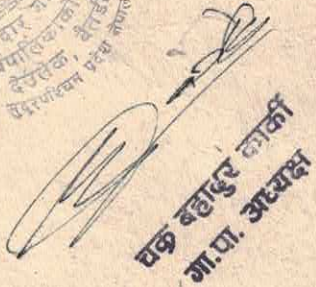 देउलेक, बैतडी
सुदूरपश्चिम प्रदेश नेपाल
चक्र बहादुर कार्की
गा.पा. अध्यक्ष